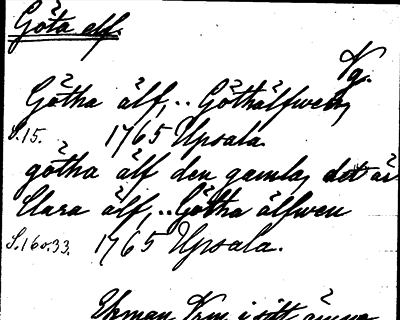 Göta elf.
Vg.
Götha älf, .. Göthälfwen,
S. 15. 1765 Upsala.
götha älf den gamla, det är
Clara älf, .. Götha älfwen
S. 16 o. 33. 1765 Upsala.
Ekman Vrm. i sitt ämne